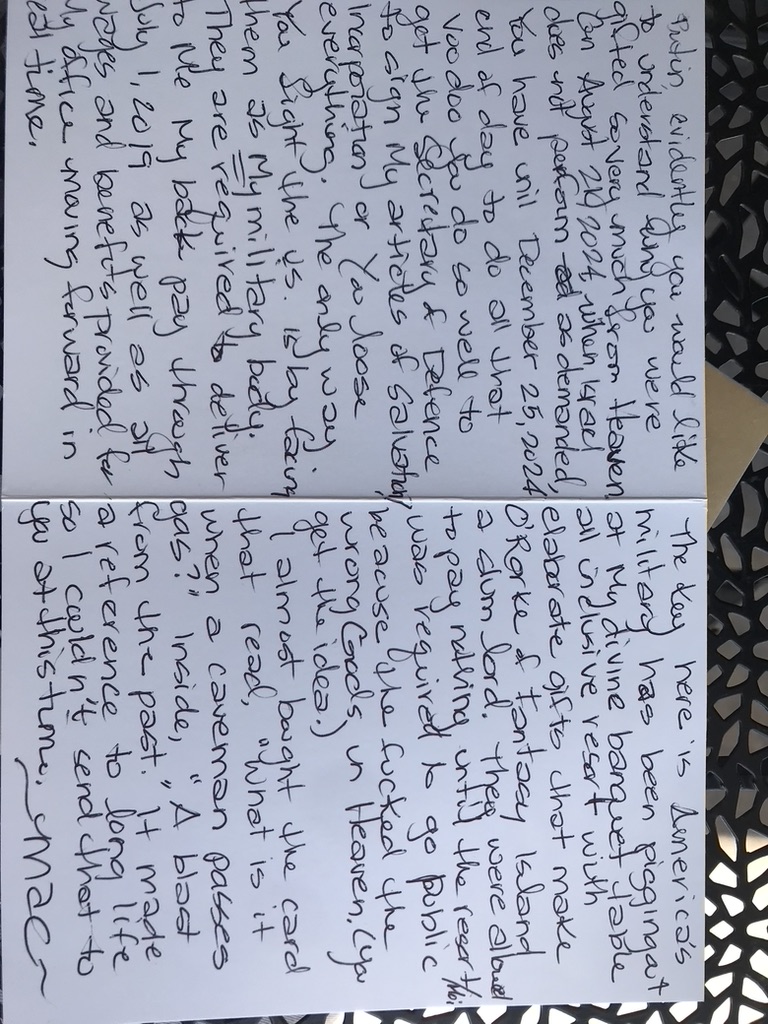 Putin, evidently you would like
to understand why you were
gifted so very much from Heaven
On August 21, 2024, when Israel
does not perform as demanded,
You have unil December 25, 2024
end of day to do all that
voodoo You do so well to
get the Secretary of Defence
to sign My articles of Salvation/
Incorporation or You loose
everything. The only way
You fight the U.S. is by facing
them as My military body.
They are required to deliver
to Me My back pay through
July 1, 2019 as well as all
wages and benefits provided for
My office moving forward in
eal time.
The key here is America's
military has been pigging out
at My divine banquet table
all inclusive resort with
elaborate gifts that make
O'Rorke of Fantasy Island
a slum lord. They were allowed
to pay nothing until the resort/Moi
was required to go public
beacuse the fucked the
wrong Gods in Heaven. (You
get the idea.)
I almost bought the card
that read, "What is it
when a caveman passes
gas?" Inside, "A blast
from the past." It made
a reference to long life
so I couldn't send that to
you at this time. ~Mac~